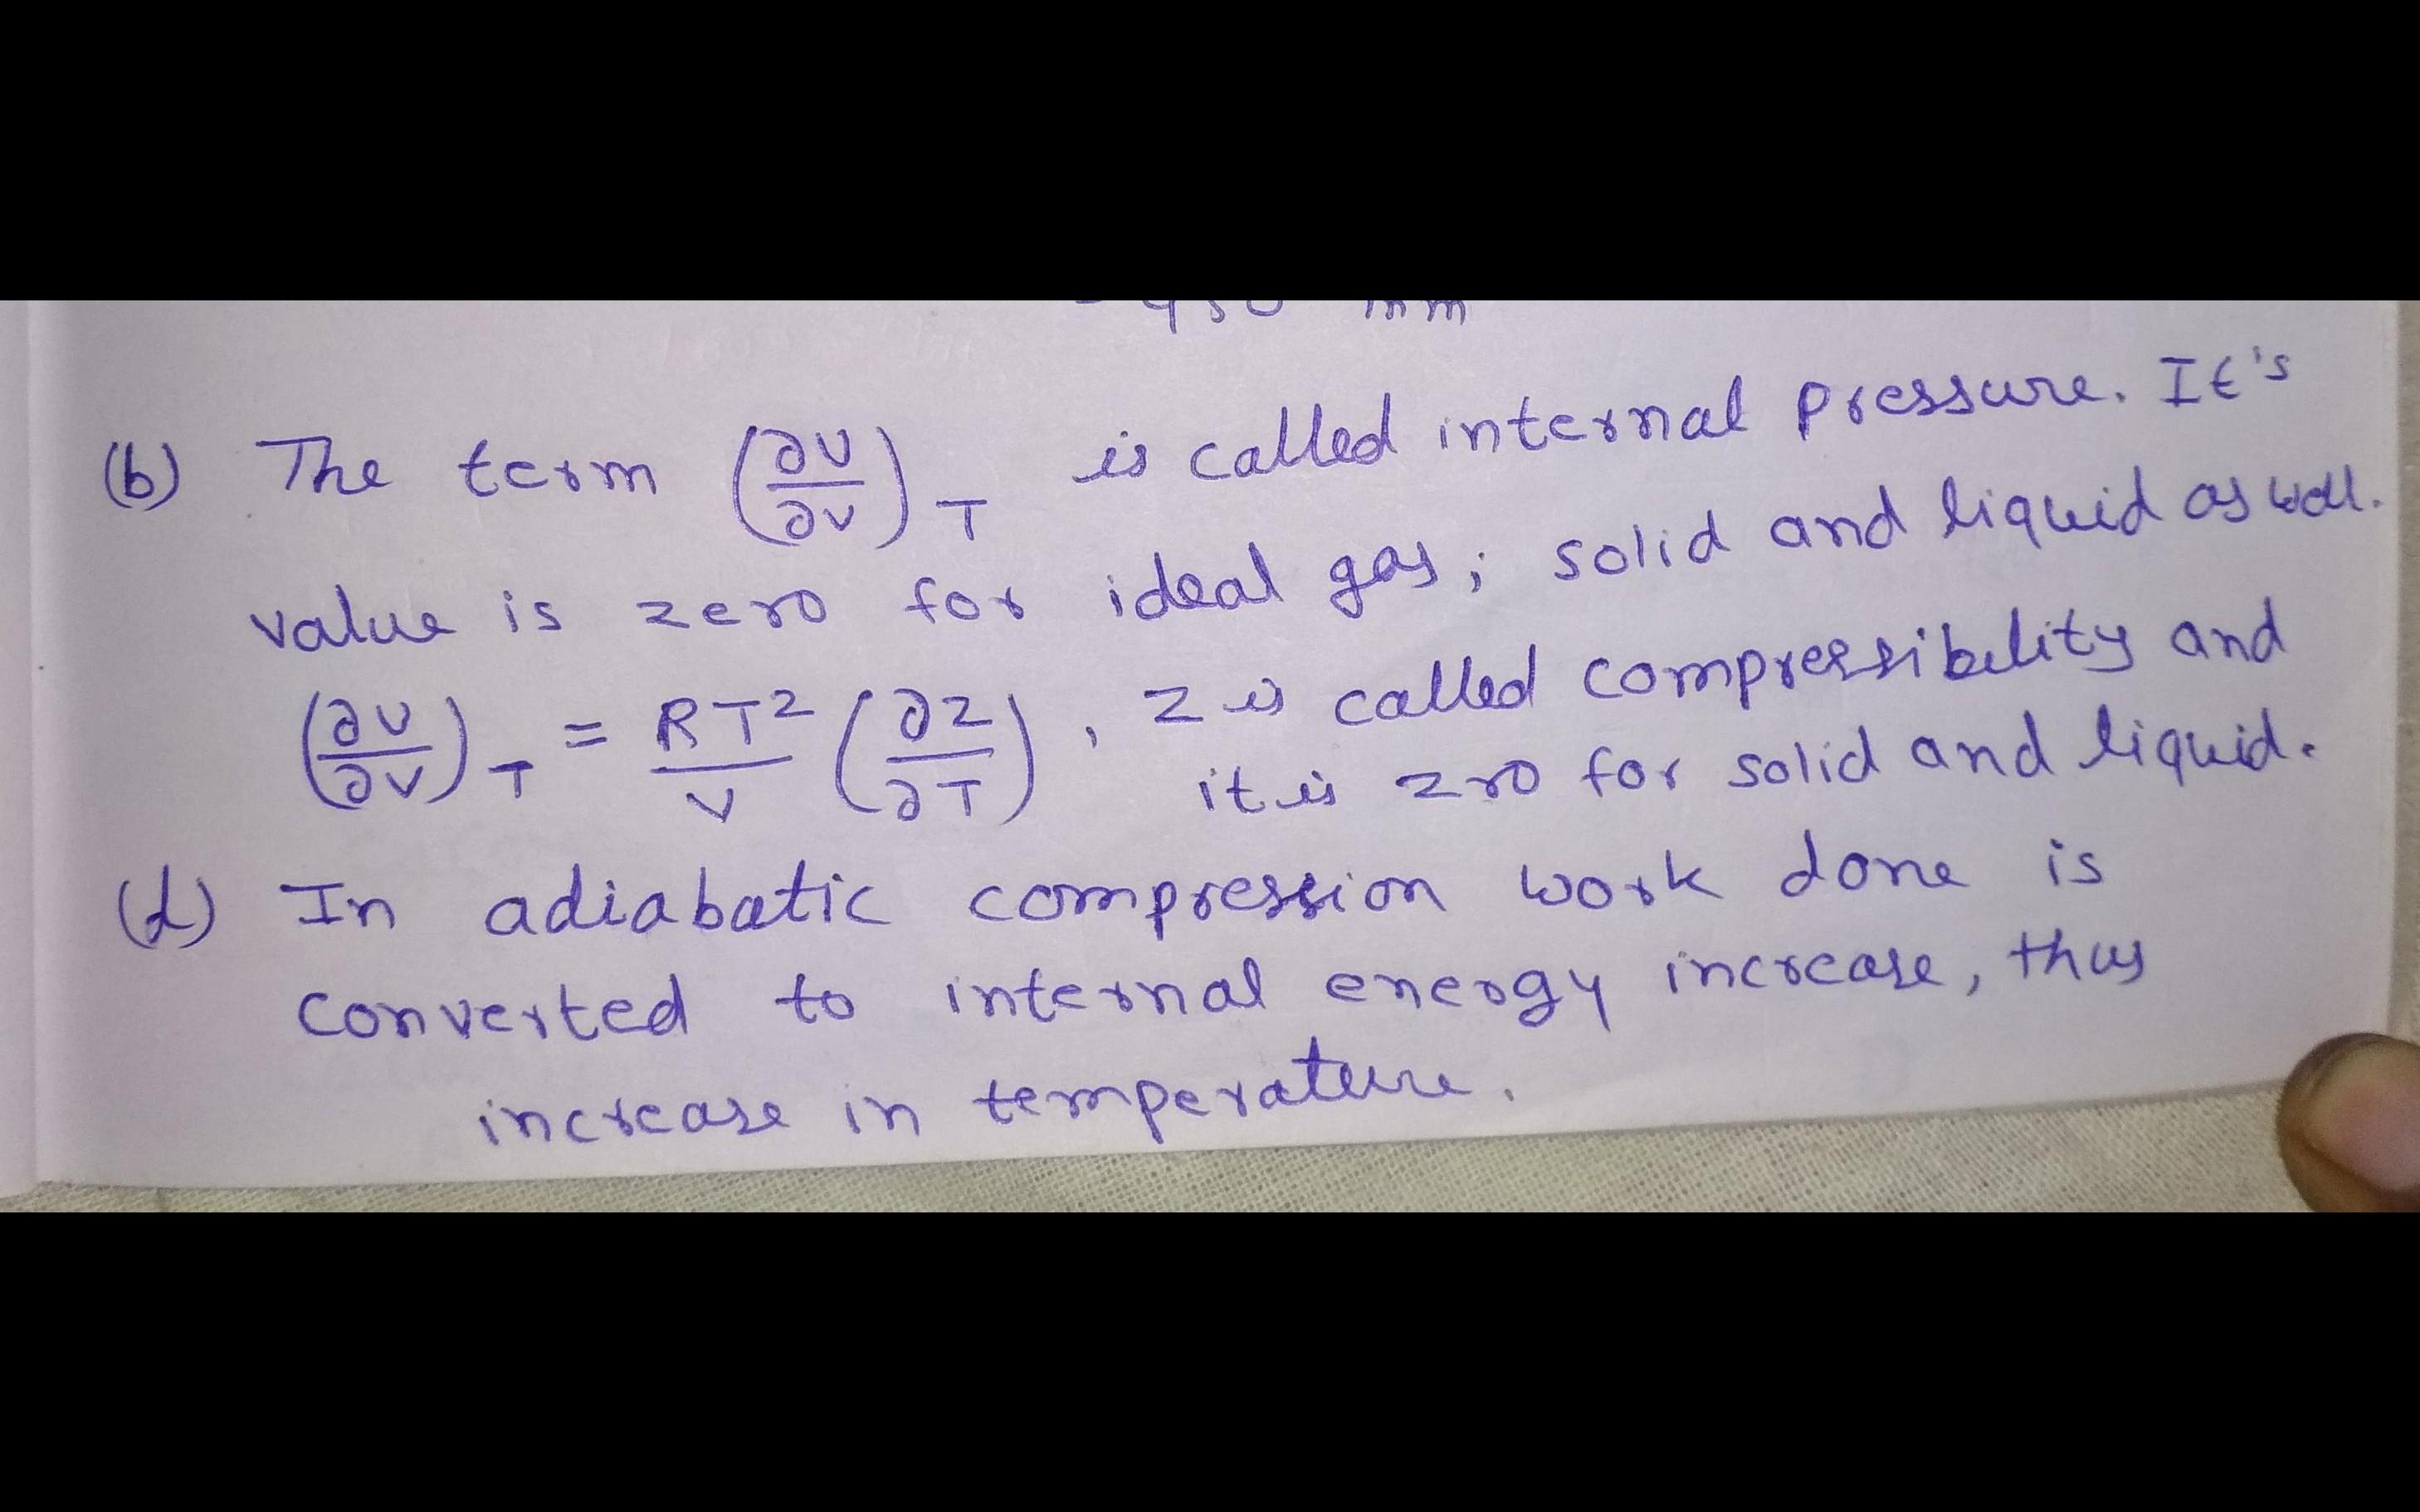 (b) The term (∂U/∂V)T is called internal pressure. It's
value is zero for ideal gas; solid and liquid as well.
(∂U/∂V)T = RT²/V (∂Z/∂T), Z is called compressibility and
it is zro for solid and liquid.
(d) In adiabatic compression work done is
converted to internal energy increase, thus
increase in temperature.